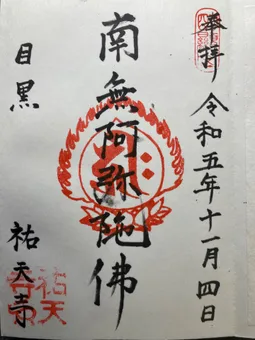 奉拝
令和五年十一月四日
南無阿弥陀佛
目黒
祐天寺
祐天寺印